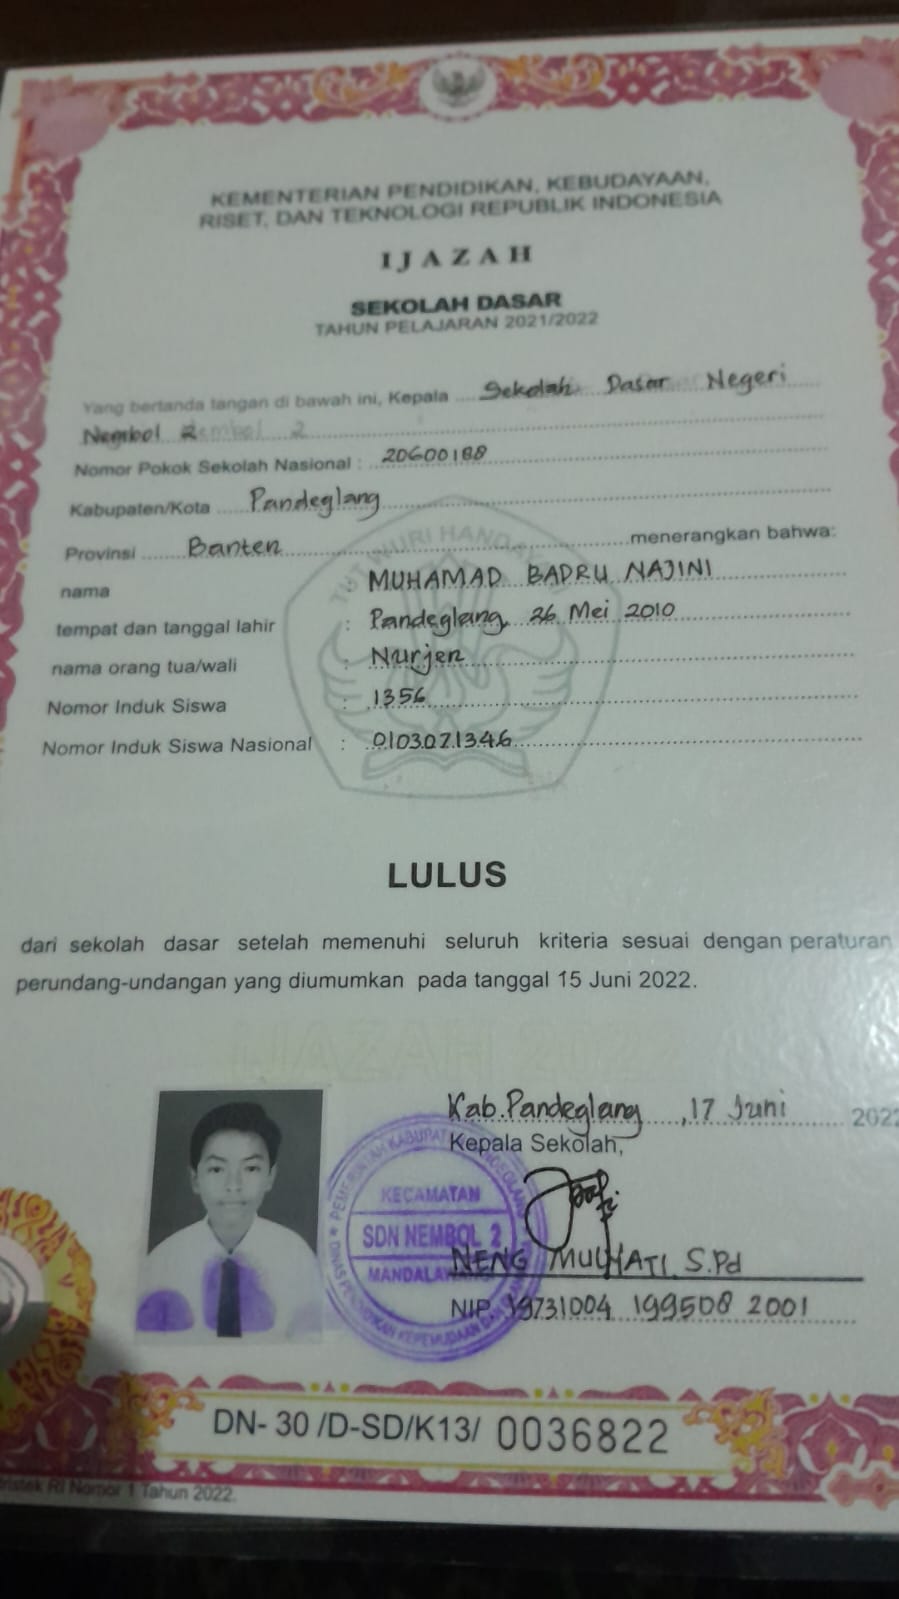 KEMENTERIAN PENDIDIKAN, KEBUDAYAAN,
RISET, DAN TEKNOLOGI REPUBLIK INDONESIA
IJAZAH
SEKOLAH DASAR
TAHUN PELAJARAN 2021/2022
Yang bertanda tangan di bawah ini, Kepala Sekolah Dasar Negeri
Nembol 2
Nomor Pokok Sekolah Nasional : 20600188
Kabupaten/Kota Pandeglang
Provinsi Banten menerangkan bahwa:
nama : MUHAMAD BADRU NAJINI
tempat dan tanggal lahir : Pandeglang, 26 Mei 2010
nama orang tua/wali : Nurjen
Nomor Induk Siswa : 1356
Nomor Induk Siswa Nasional : 0103071346
LULUS
dari sekolah dasar setelah memenuhi seluruh kriteria sesuai dengan peraturan
perundang-undangan yang diumumkan pada tanggal 15 Juni 2022.
IJAZAH 2022
Kab. Pandeglang, 17 Juni 2022
Kepala Sekolah,
KECAMATAN
SDN NEMBOL 2
NENG MULHATI, S.Pd
NIP. 19731004 199508 2001
DN- 30 /D-SD/K13/ 0036822
RI Nomor 1 Tahun 2022.